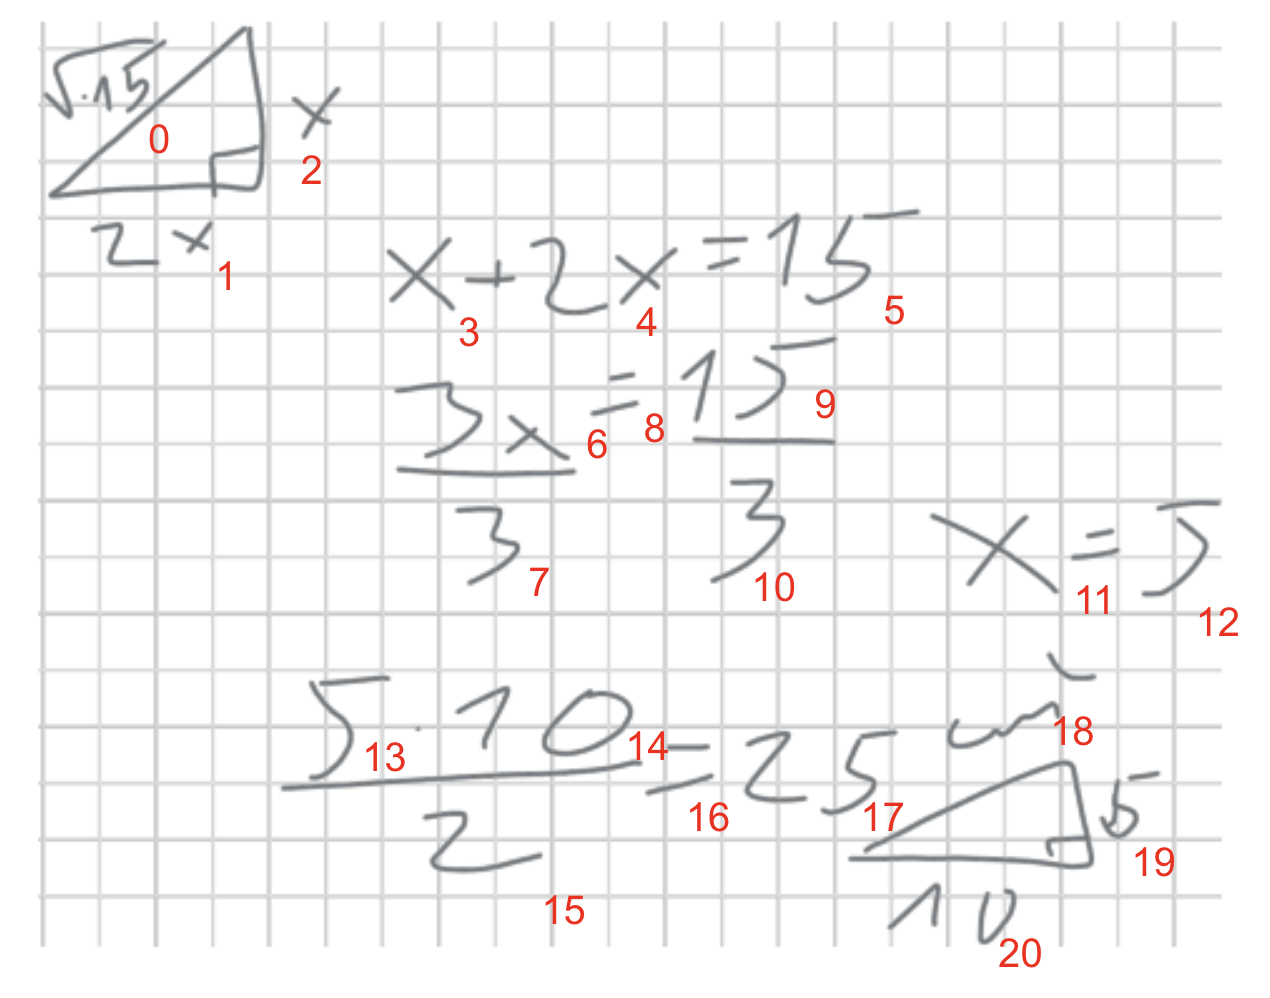 √.15
0
x
2
2x
1
x+2x=15
3 4 5
3x = 15
6 8 9
3 3
7 10
x=5
11 12
5·10 = 25
13 14 16 17
2
15
18
5
19
10
20